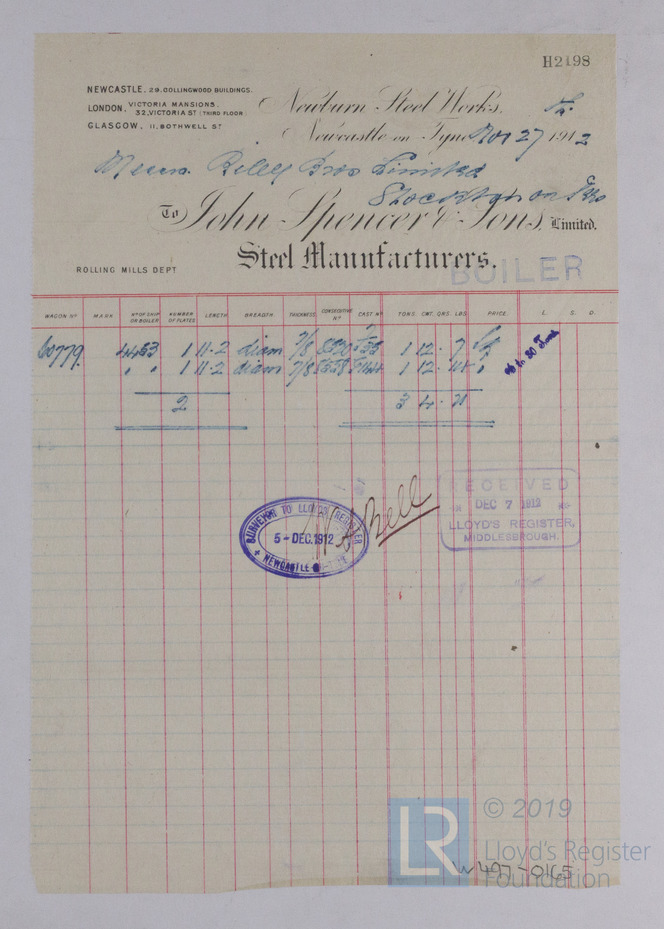 H2198
NEWCASTLE, 29, COLLINGWOOD BUILDINGS.
LONDON, VICTORIA MANSIONS, 32, VICTORIA ST (THIRD FLOOR)
GLASGOW, 11, BOTHWELL ST
Newburn Steel Works,
Newcastle on Tyne Nov 27 1912
Messrs. Riley Bros Limited
Stockton on Tees
To John Spencer & Sons, Limited.
Steel Manufacturers.
BOILER
ROLLING MILLS DEPT
WAGON No MARK No OF SHIP OR BOILER NUMBER OF PLATES LENGTH BREADTH THICKNESS CONSECUTIVE No CAST No TONS. CWT. QRS. LBS. PRICE. £. S. D.
60779. 4453 1 11.2 diam 7/8 1 12 . 7
" " 1 11.2 diam 7/8 1 12 . 14 "
26 to 30 Tons
2 3 4 . 21
RECEIVED
DEC 7 1912
LLOYD'S REGISTER,
MIDDLESBROUGH.
SURVEYOR TO LLOYD'S REGISTER
5 - DEC. 1912
NEWCASTLE-ON-TYNE
Bell
LR
© 2019
Lloyd's Register
Foundation
W497-0165